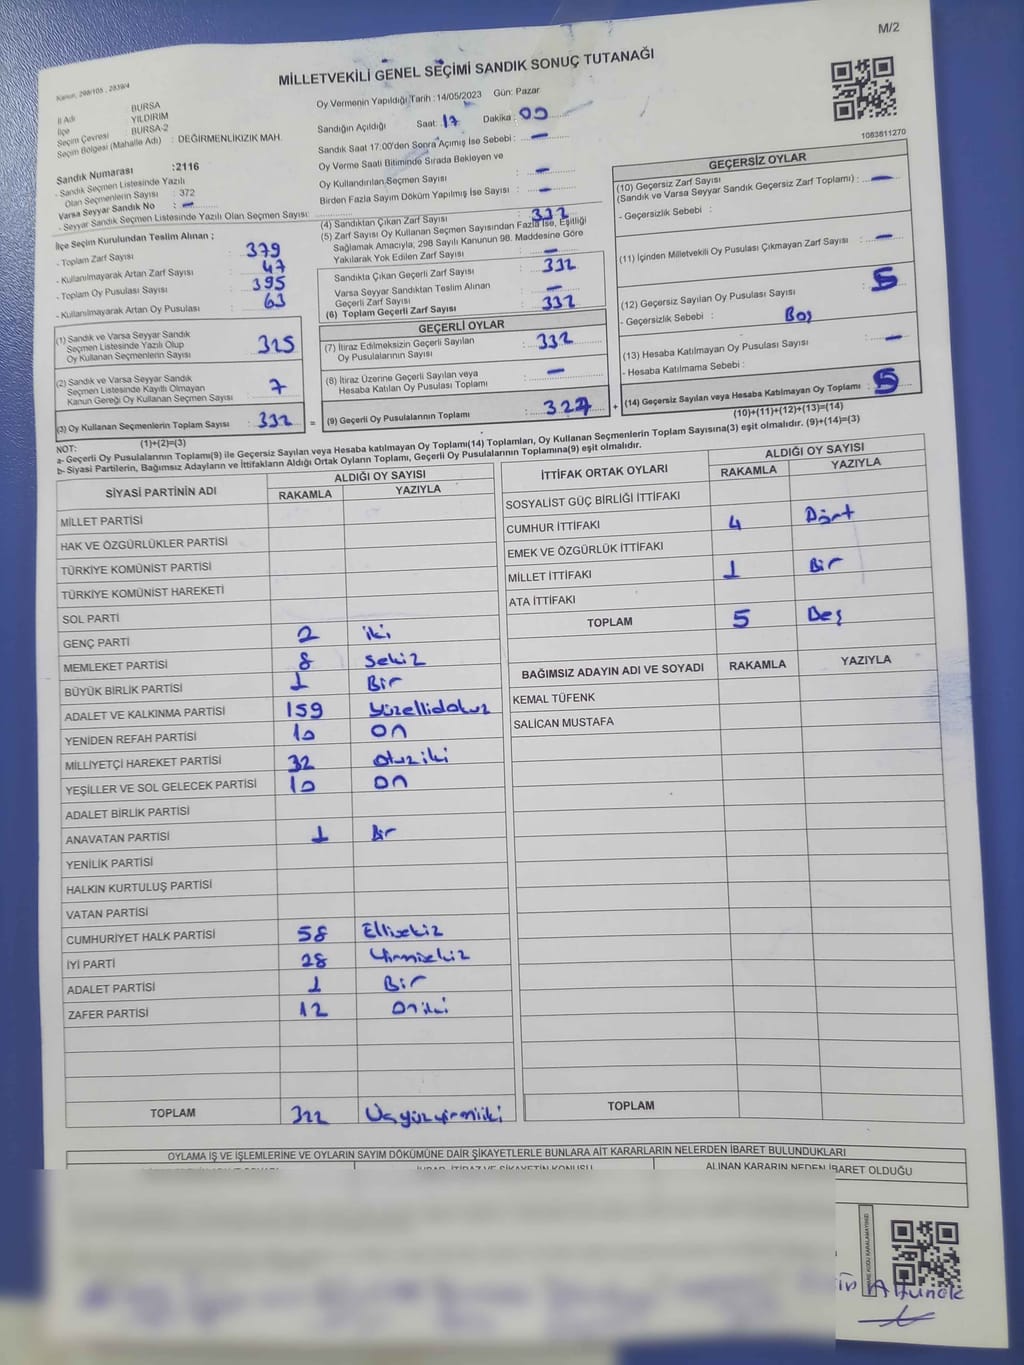 M/2
MİLLETVEKİLİ GENEL SEÇİMİ SANDIK SONUÇ TUTANAĞI
Kanun: 298/105 , 2839/4
İl Adı : BURSA
İlçe : YILDIRIM
Seçim Çevresi : BURSA-2
Seçim Bölgesi (Mahalle Adı) : DEĞİRMENLİKIZIK MAH.
Oy Vermenin Yapıldığı Tarih : 14/05/2023 Gün: Pazar
Sandığın Açıldığı Saat: 17 Dakika : 00
Sandık Saat 17:00'den Sonra Açımış İse Sebebi : —
Oy Verme Saati Bitiminde Sırada Bekleyen ve
Oy Kullandırılan Seçmen Sayısı : —
Birden Fazla Sayım Döküm Yapılmış İse Sayısı : —
1083811270
Sandık Numarası :2116
- Sandık Seçmen Listesinde Yazılı
Olan Seçmenlerin Sayısı : 372
Varsa Seyyar Sandık No : —
- Seyyar Sandık Seçmen Listesinde Yazılı Olan Seçmen Sayısı:
İlçe Seçim Kurulundan Teslim Alınan ;
- Toplam Zarf Sayısı : 379
- Kullanılmayarak Artan Zarf Sayısı : 47
- Toplam Oy Pusulası Sayısı : 395
- Kullanılmayarak Artan Oy Pusulası : 63
(1) Sandık ve Varsa Seyyar Sandık
Seçmen Listesinde Yazılı Olup
Oy Kullanan Seçmenlerin Sayısı : 325
(2) Sandık ve Varsa Seyyar Sandık
Seçmen Listesinde Kayıtlı Olmayan
Kanun Gereği Oy Kullanan Seçmen Sayısı : 7
(3) Oy Kullanan Seçmenlerin Toplam Sayısı : 332
(1)+(2)=(3)
(4) Sandıktan Çıkan Zarf Sayısı : 332
(5) Zarf Sayısı Oy Kullanan Seçmen Sayısından Fazla İse, Eşitliği
Sağlamak Amacıyla, 298 Sayılı Kanunun 98. Maddesine Göre
Yakılarak Yok Edilen Zarf Sayısı : —
Sandıkta Çıkan Geçerli Zarf Sayısı : 332
Varsa Seyyar Sandıktan Teslim Alınan
Geçerli Zarf Sayısı : —
(6) Toplam Geçerli Zarf Sayısı : 332
GEÇERLİ OYLAR
(7) İtiraz Edilmeksizin Geçerli Sayılan
Oy Pusulalarının Sayısı : 332
(8) İtiraz Üzerine Geçerli Sayılan veya
Hesaba Katılan Oy Pusulası Toplamı : —
= (9) Geçerli Oy Pusulalarının Toplamı : 327
GEÇERSİZ OYLAR
(10) Geçersiz Zarf Sayısı
(Sandık ve Varsa Seyyar Sandık Geçersiz Zarf Toplamı) : —
- Geçersizlik Sebebi :
(11) İçinden Milletvekili Oy Pusulası Çıkmayan Zarf Sayısı : —
(12) Geçersiz Sayılan Oy Pusulası Sayısı : 5
- Geçersizlik Sebebi : Boş
(13) Hesaba Katılmayan Oy Pusulası Sayısı : —
- Hesaba Katılmama Sebebi :
+ (14) Geçersiz Sayılan veya Hesaba Katılmayan Oy Toplamı : 5
(10)+(11)+(12)+(13)=(14)
NOT:
a- Geçerli Oy Pusulalarının Toplamı(9) ile Geçersiz Sayılan veya Hesaba katılmayan Oy Toplamı(14) Toplamları, Oy Kullanan Seçmenlerin Toplam Sayısına(3) eşit olmalıdır. (9)+(14)=(3)
b- Siyasi Partilerin, Bağımsız Adayların ve İttifakların Aldığı Ortak Oyların Toplamı, Geçerli Oy Pusulalarının Toplamına(9) eşit olmalıdır.
SİYASİ PARTİNİN ADI ALDIĞI OY SAYISI
RAKAMLA YAZIYLA
MİLLET PARTİSİ
HAK VE ÖZGÜRLÜKLER PARTİSİ
TÜRKİYE KOMÜNİST PARTİSİ
TÜRKİYE KOMÜNİST HAREKETİ
SOL PARTİ
GENÇ PARTİ 2 iki
MEMLEKET PARTİSİ 8 sekiz
BÜYÜK BİRLİK PARTİSİ 1 Bir
ADALET VE KALKINMA PARTİSİ 159 yüzellidokuz
YENİDEN REFAH PARTİSİ 10 on
MİLLİYETÇİ HAREKET PARTİSİ 32 otuziki
YEŞİLLER VE SOL GELECEK PARTİSİ 10 on
ADALET BİRLİK PARTİSİ
ANAVATAN PARTİSİ 1 Bir
YENİLİK PARTİSİ
HALKIN KURTULUŞ PARTİSİ
VATAN PARTİSİ
CUMHURİYET HALK PARTİSİ 58 Ellisekiz
İYİ PARTİ 28 Yirmisekiz
ADALET PARTİSİ 1 Bir
ZAFER PARTİSİ 12 Oniki
TOPLAM 322 Üçyüzyirmiiki
İTTİFAK ORTAK OYLARI ALDIĞI OY SAYISI
RAKAMLA YAZIYLA
SOSYALİST GÜÇ BİRLİĞİ İTTİFAKI
CUMHUR İTTİFAKI 4 Dört
EMEK VE ÖZGÜRLÜK İTTİFAKI
MİLLET İTTİFAKI 1 Bir
ATA İTTİFAKI
TOPLAM 5 Beş
BAĞIMSIZ ADAYIN ADI VE SOYADI RAKAMLA YAZIYLA
KEMAL TÜFENK
SALİCAN MUSTAFA
TOPLAM
OYLAMA İŞ VE İŞLEMLERİNE VE OYLARIN SAYIM DÖKÜMÜNE DAİR ŞİKAYETLERLE BUNLARA AİT KARARLARIN NELERDEN İBARET BULUNDUKLARI
İTİRAZ VE ŞİKAYETİN KONUSU ALINAN KARARIN NEDEN İBARET OLDUĞU